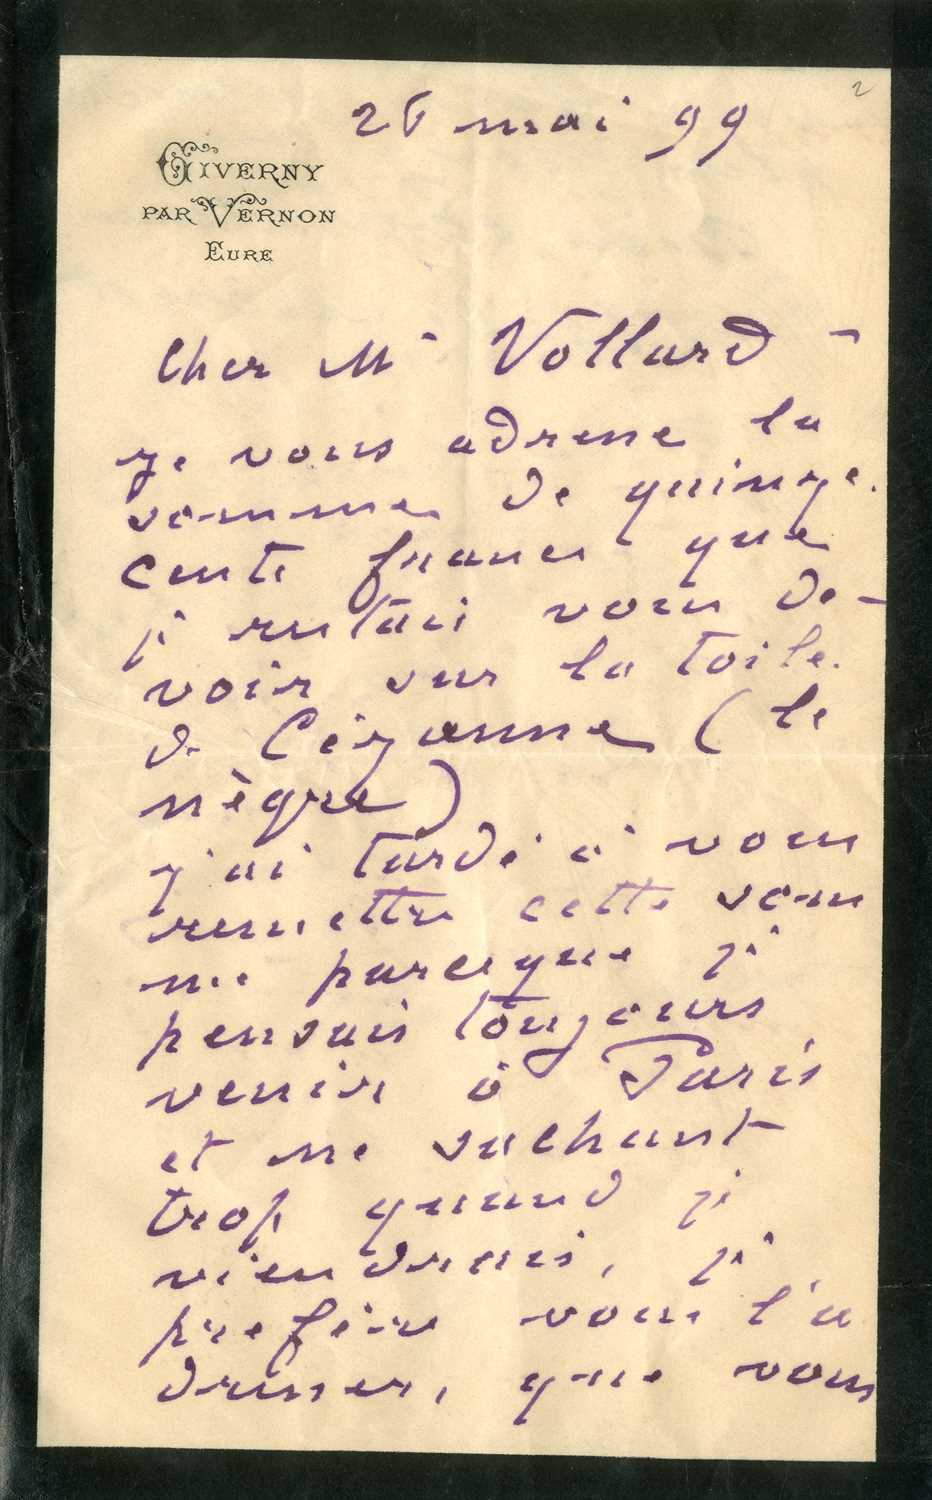 2
26 mai 99
GIVERNY
PAR VERNON
EURE
Cher Mr Vollard –
je vous adresse la
somme de quinze
cents francs que
je restais vous de-
voir sur la toile
de Cézanne (le
nègre)
j'ai tardé à vous
remettre cette som
me parceque je
pensais toujours
venir à Paris
et ne sachant
trop quand je
viendrais, je
prefère vous l'a
dresser, que vous